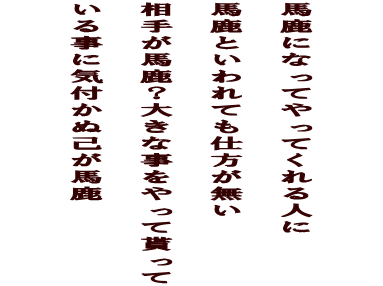 馬鹿になってやってくれる人に
馬鹿といわれても仕方が無い
相手が馬鹿？大きな事をやって貰って
いる事に気付かぬ己が馬鹿